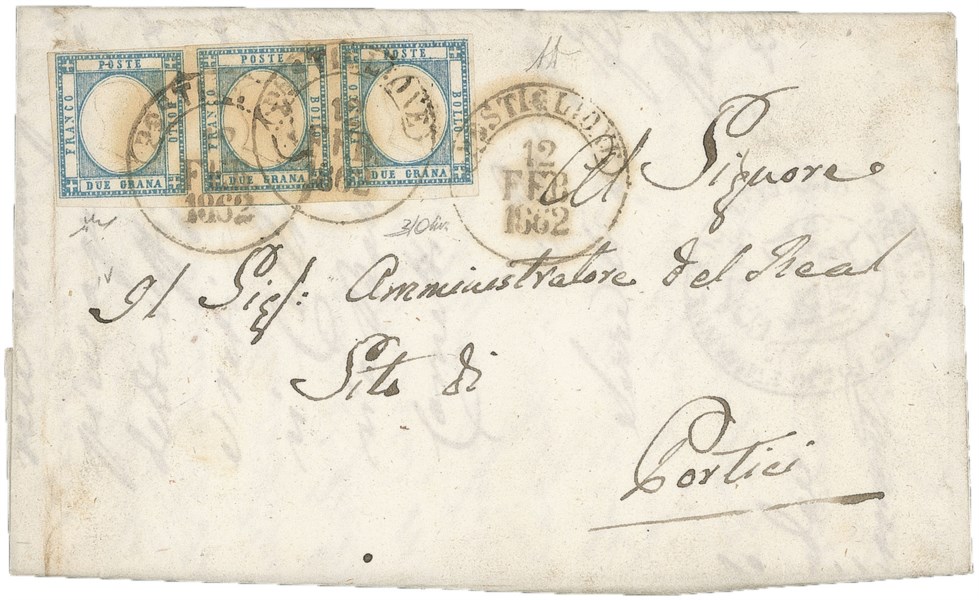 POSTE
FRANCO
BOLLO
DUE GRANA
POSTE
FRANCO
BOLLO
DUE GRANA
POSTE
FRANCO
BOLLO
DUE GRANA
FEB
1862
12
1862
12
FEB
1862
Al Signore
Il Sigr: Amministratore del Real
Sito di
Portici